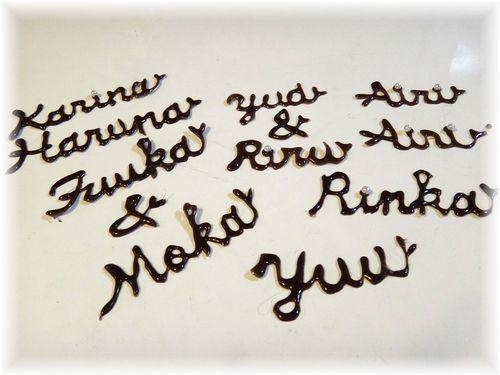 Karina
Haruna
Fuuka
&
Moka
yua
&
Riru
Airi
Airi
Rinka
yuu